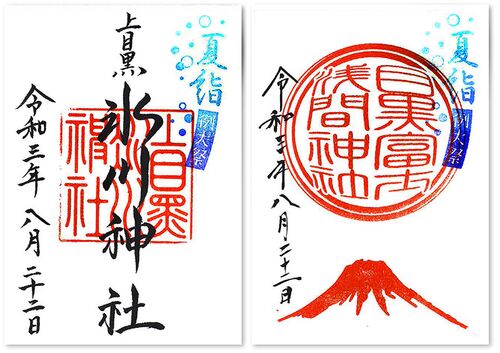 夏詣
例大祭
上目黒
氷川神社
上目黒
氷川
神社
令和三年八月二十二日
夏詣
例大祭
目黒富士
浅間神社
令和三年八月二十二日